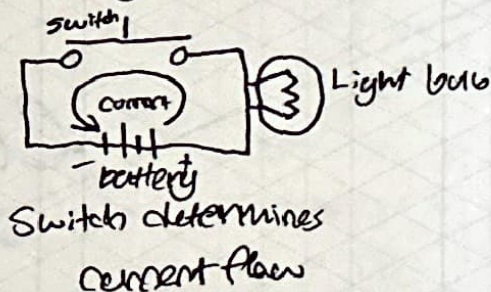 switch
current
Light bulb
- +
battery
Switch determines
current flow